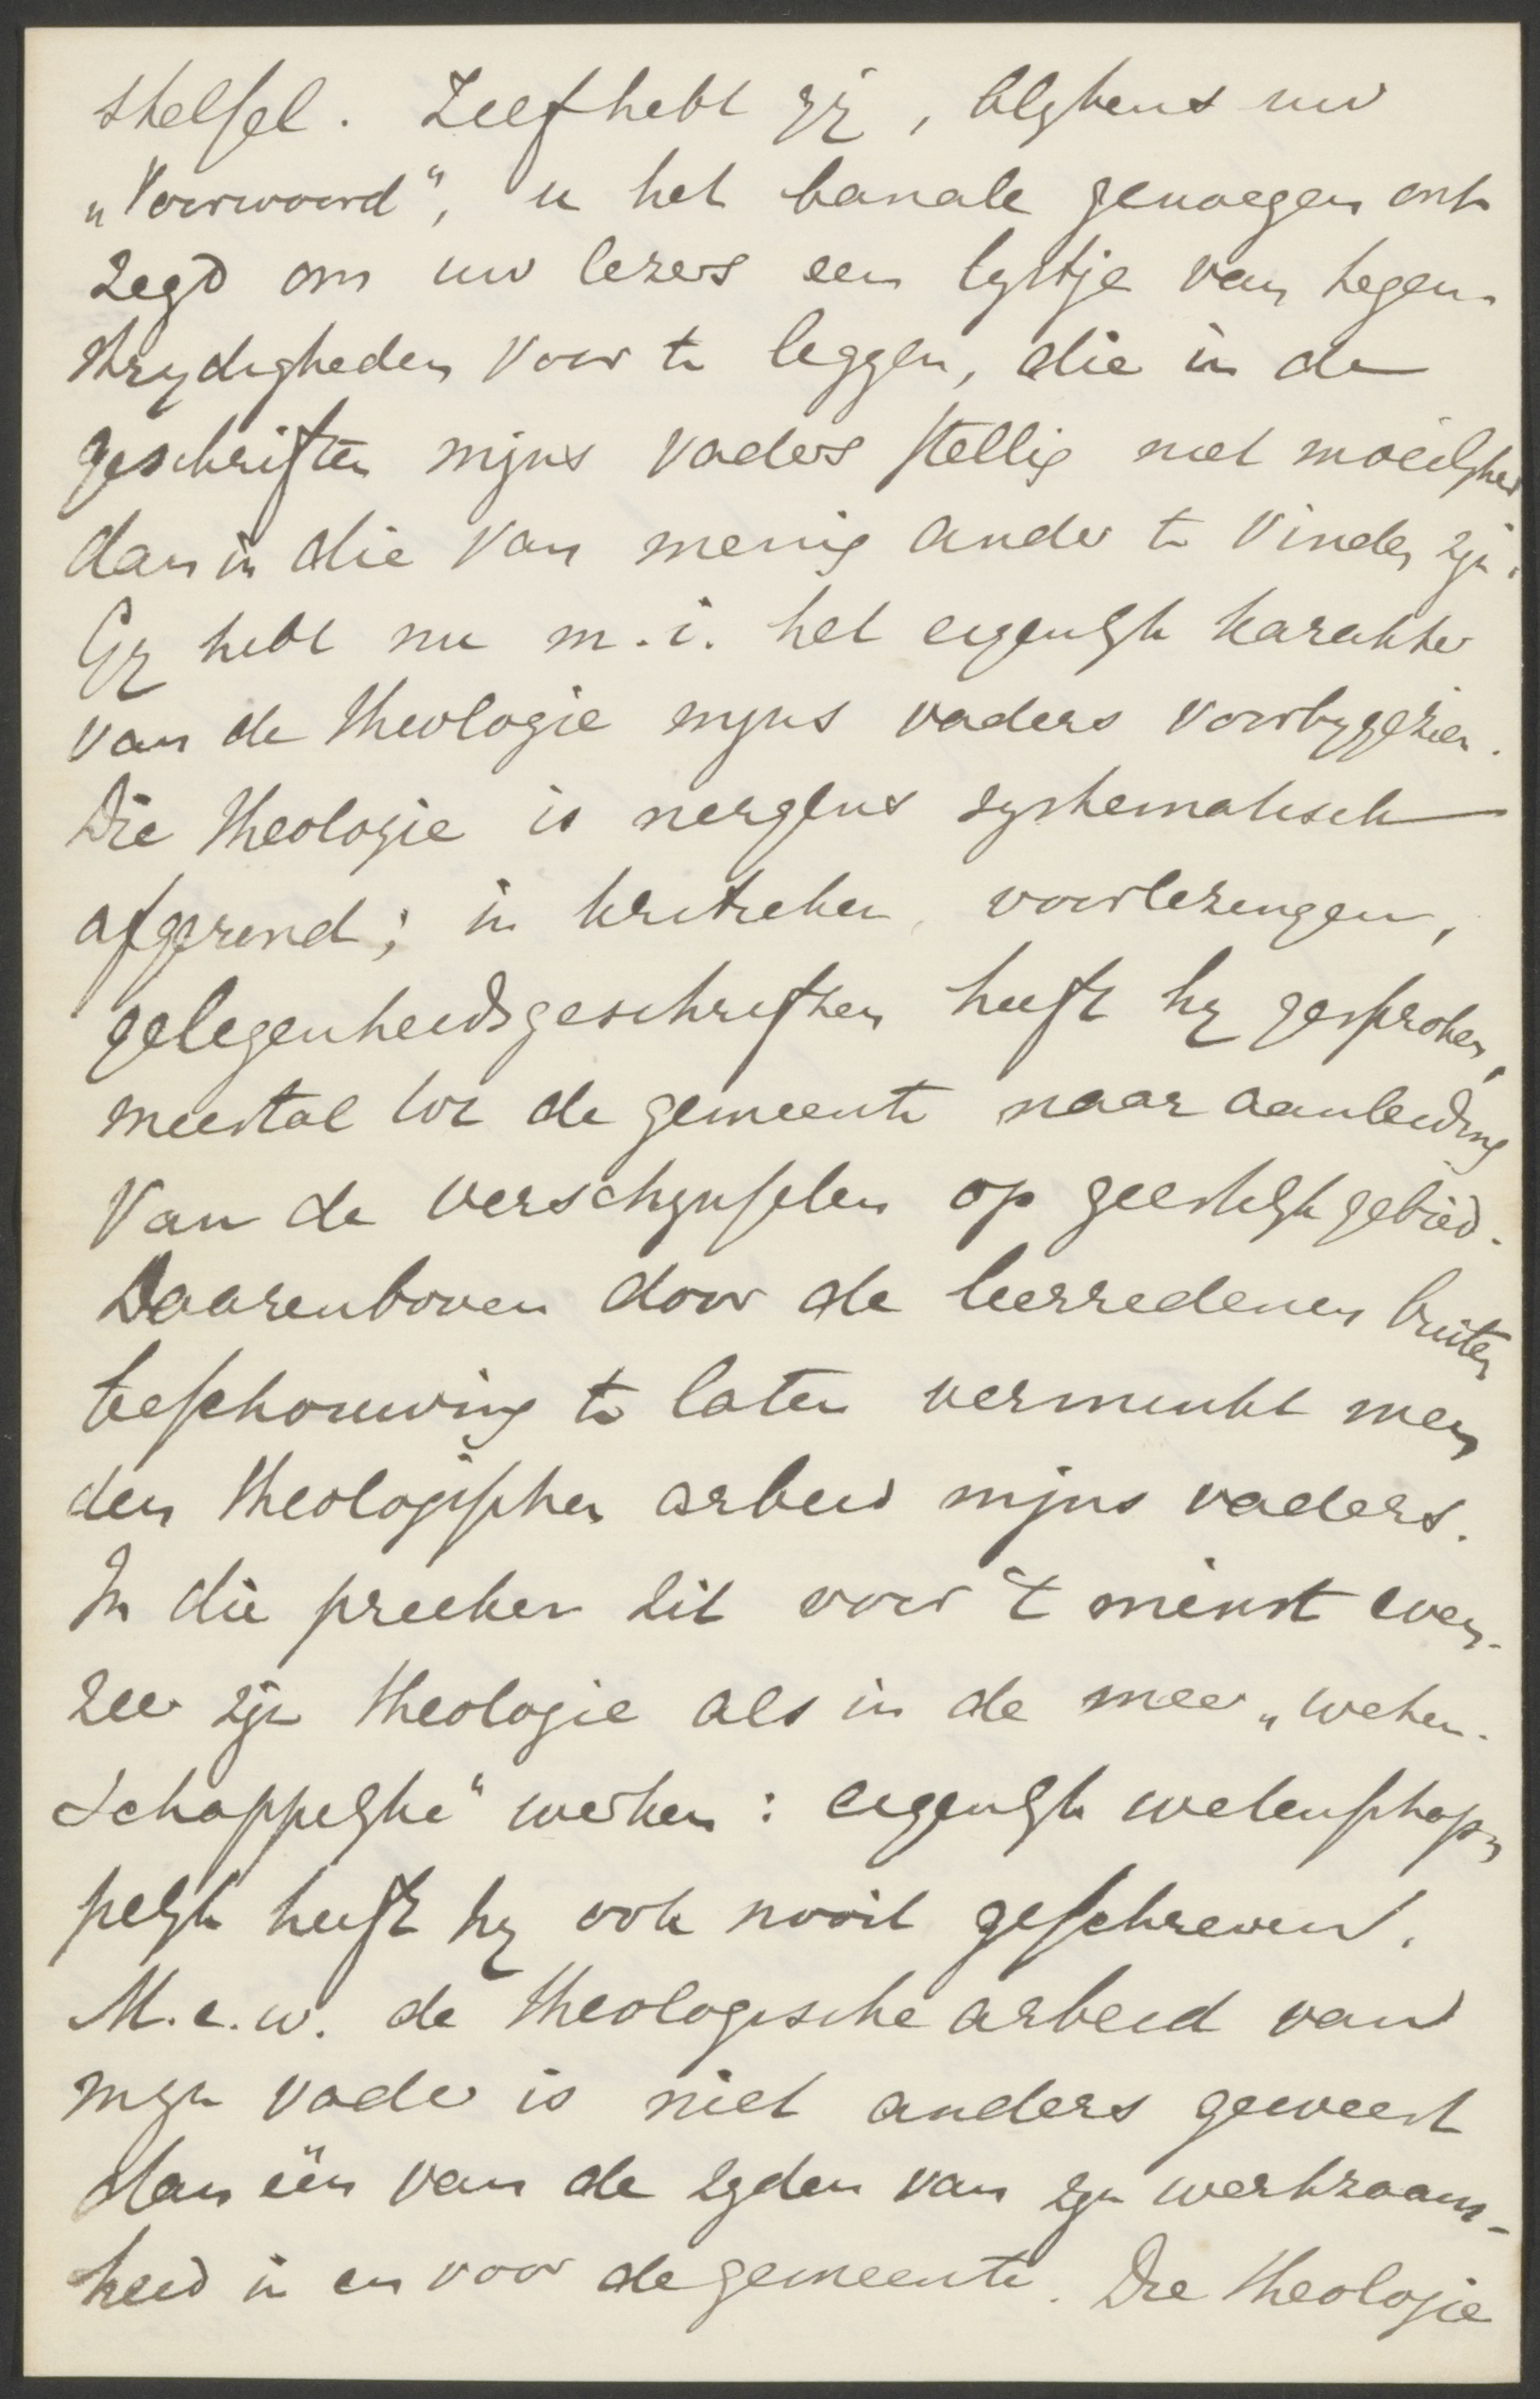 stelsel. Zelf hebt gij, blijkens uw
„Voorwoord", u het banale genoegen ont
zegd om uw lezers een lijstje van tegen-
strijdigheden voor te leggen, die in de
geschriften mijns vaders stellig niet moeilijker
dan in die van menig ander te vinden zijn.
Gij hebt nu m.i. het eigenlijk karakter
van de theologie mijns vaders voorbijgezien.
Die theologie is nergens systematisch
afgerond; in kritieken, voorlezingen,
gelegenheidsgeschriften heeft hij gesproken,
meestal tot de gemeente naar aanleiding
van de verschijnselen op geestelijk gebied.
Daarenboven door de leerredenen buiten
beschouwing te laten verminkt men
den theologischen arbeid mijns vaders.
In die preeken zit voor 't minst even-
zeer zijn theologie als in de meer „weten-
schappelijke" werken: eigenlijk wetenschap-
pelijk heeft hij ook nooit geschreven.
M.a.w. de theologische arbeid van
mijn vader is niet anders geweest
dan één van de zijden van zijn werkzaam-
heid in en voor de gemeente. Die theologie